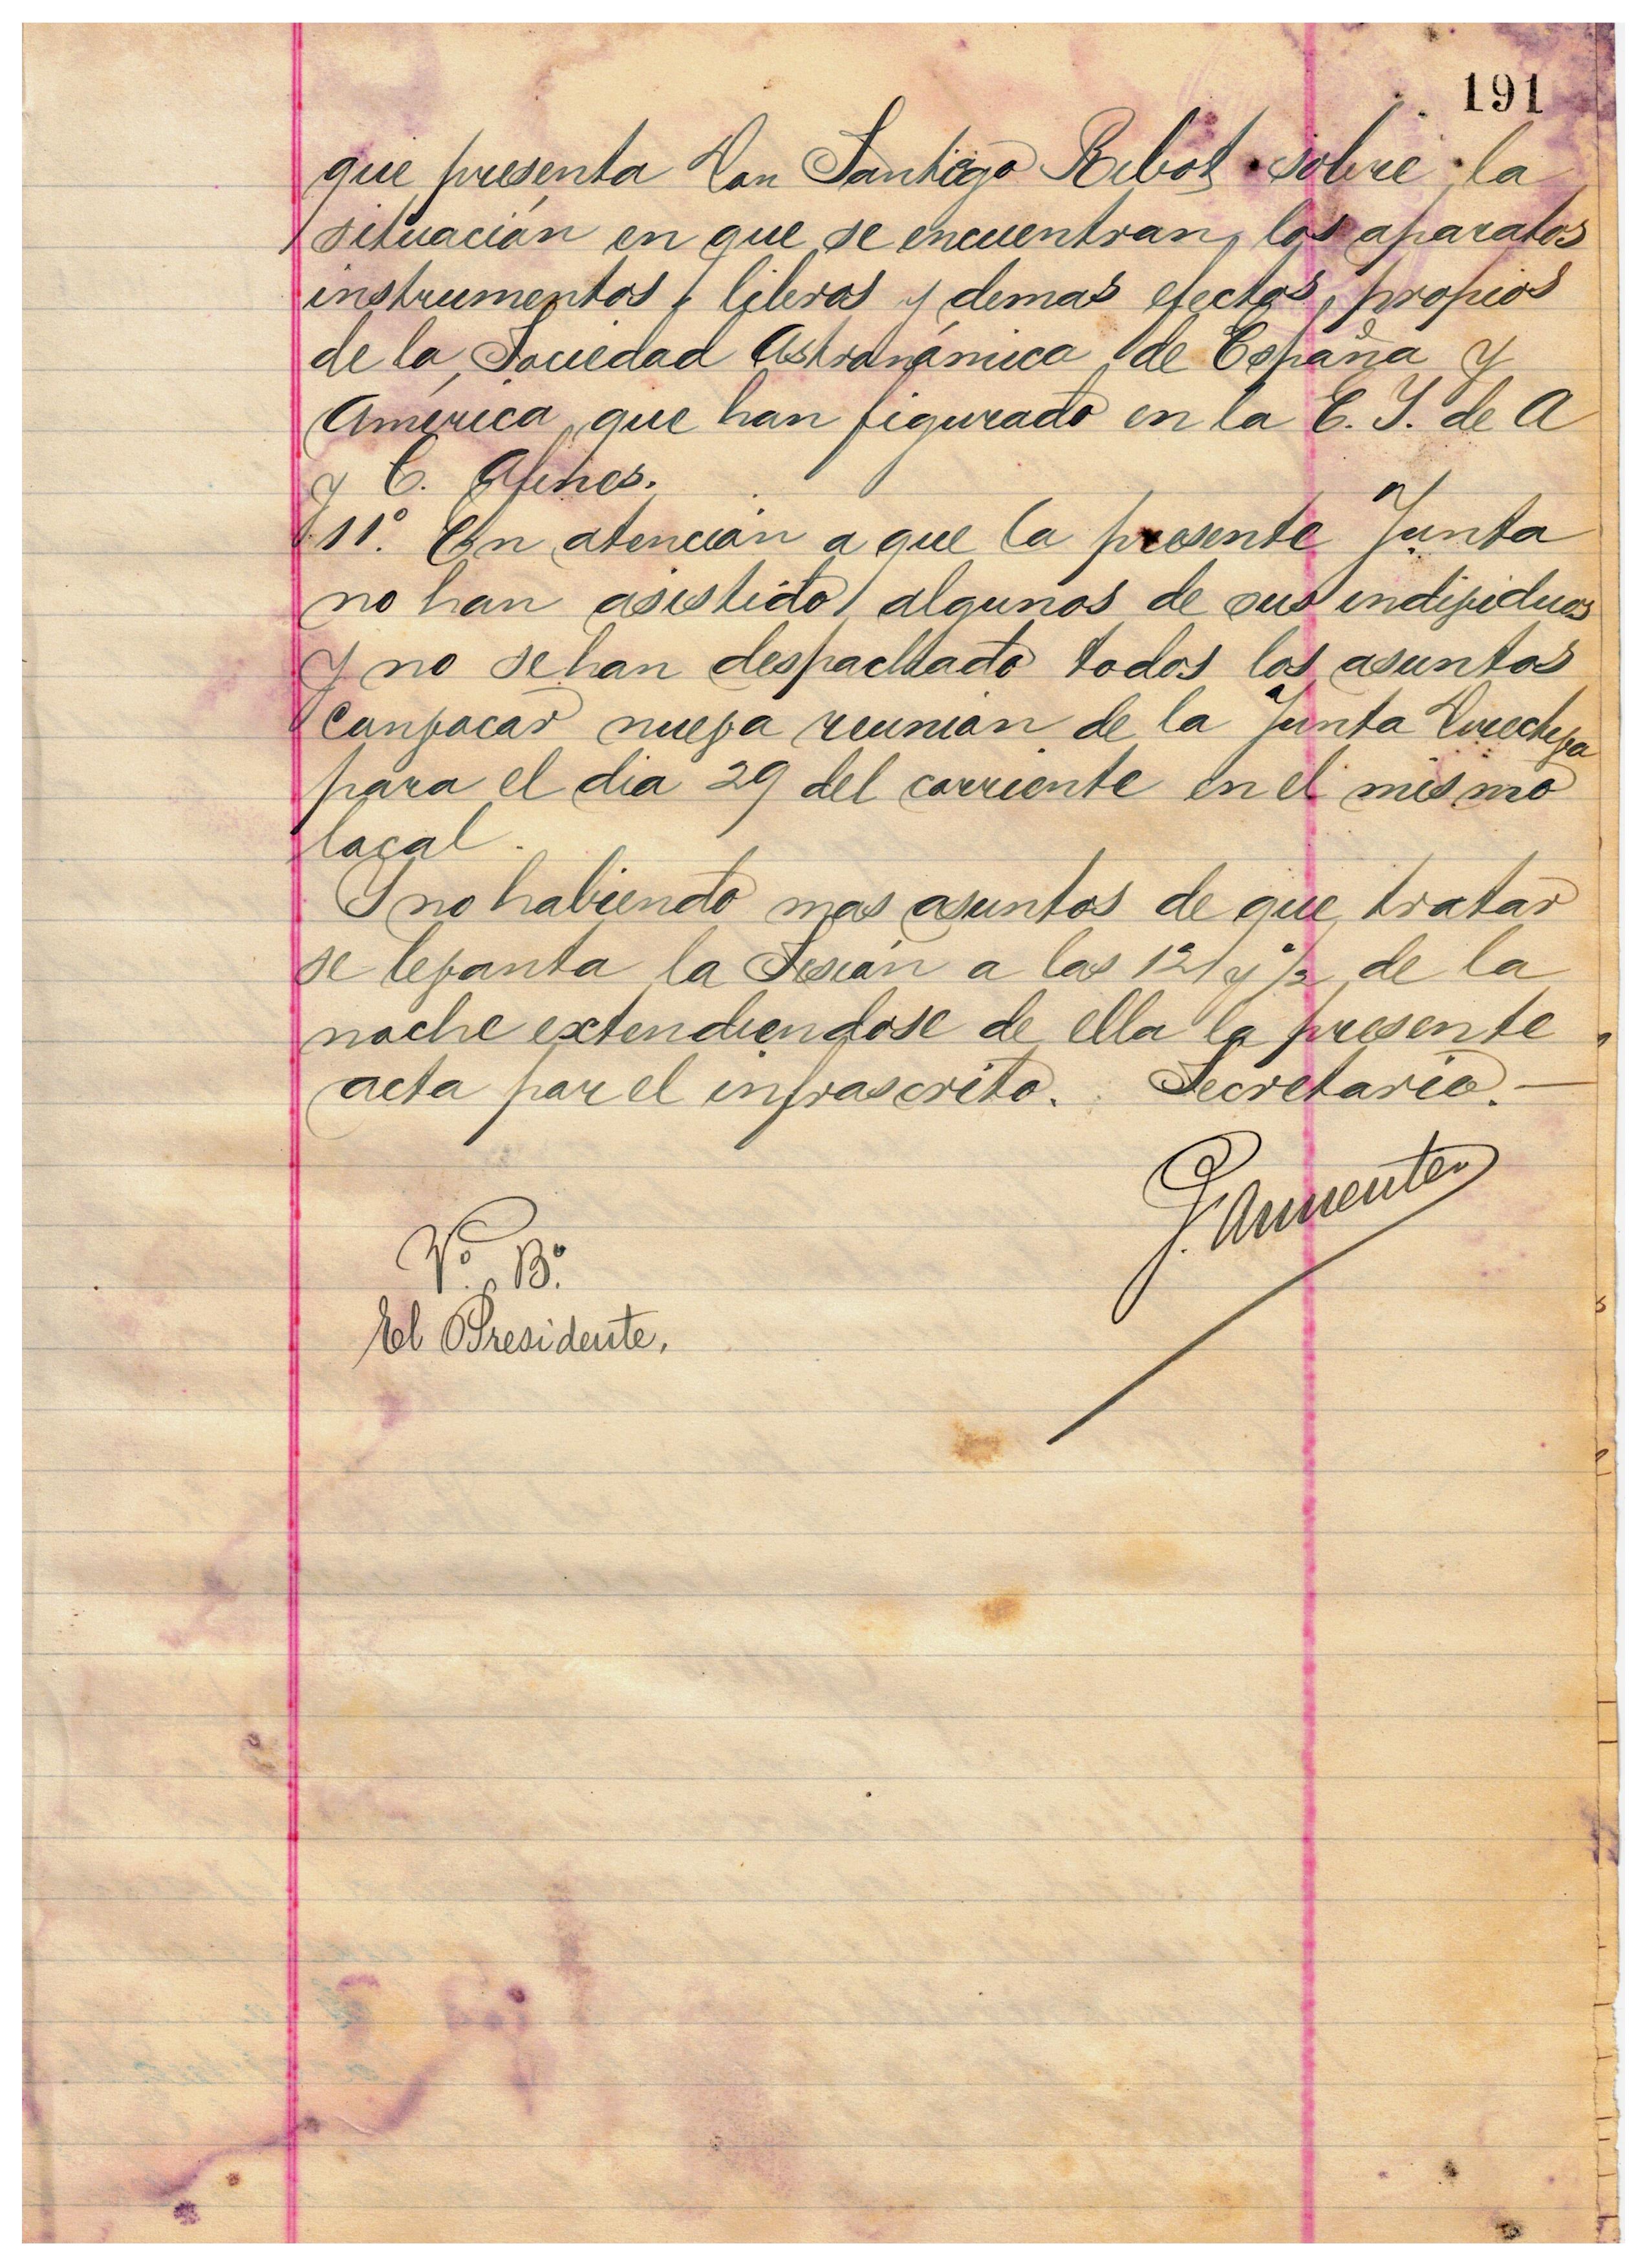 191
que presenta Don Santiago Ribot sobre la
situación en que se encuentran, los aparatos
instrumentos, libros y demas efectos, propios
de la Sociedad Astronómica de España y
América, que han figurado en la E. I. de A
y C. Afines.
11º. En atención a que la presente Junta
no han asistido algunos de sus individuos
y no se han despachado todos los asuntos
convocar nueva reunion de la Junta Directiva
para el dia 29 del corriente en el mismo
local.
Y no habiendo mas asuntos de que tratar
se levanta la Sesión a las 12 y ½ de la
noche extendiendose de ella la presente
acta por el infrascrito. Secretario.—
J. Armenter
Vº. Bº.
El Presidente,